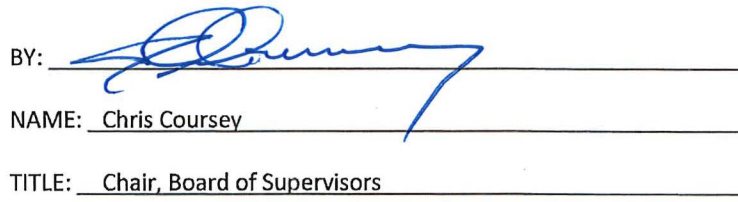 BY:
NAME: Chris Coursey
TITLE: Chair, Board of Supervisors